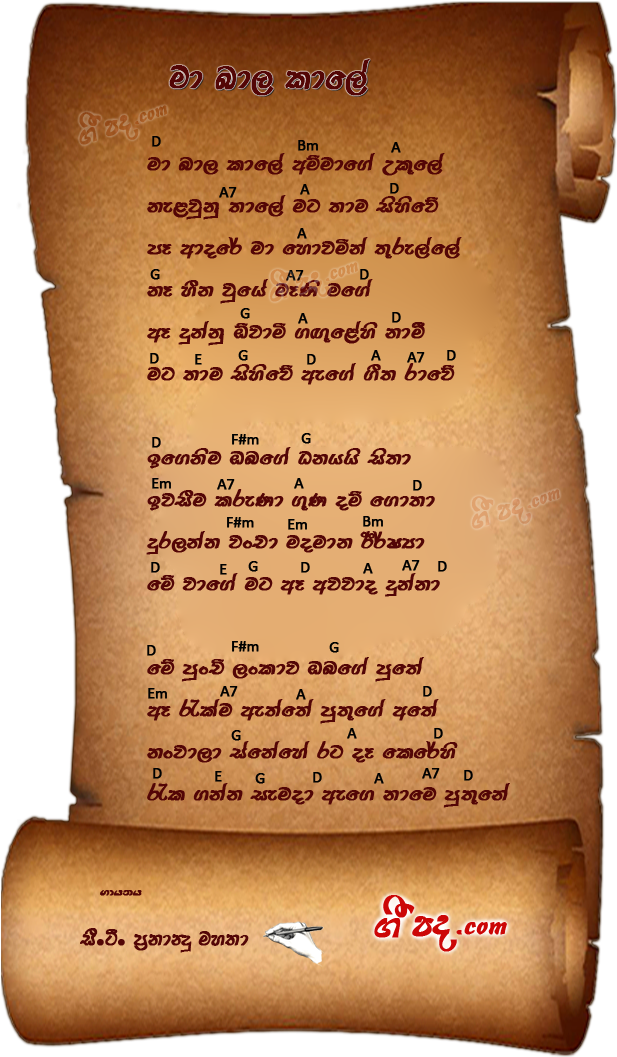 මා බාල කාලේ
ගී පද.com
D Bm A
මා බාල කාලේ අම්මාගේ උකුලේ
A7 A D
නැළවුනු තාලේ මට තාම සිහිවේ
A
පෑ ආදරේ මා හොවමින් තුරුල්ලේ
G A7 D
නෑ හීන වූයේ මෑණි මගේ
ගී පද.com
G A D
ඈ දුන්නු ඕවාමි ගඟුළේහි නාමී
D E G D A A7 D
මට තාම සිහිවේ ඇගේ ගීත රාවේ
D F#m G
ඉගෙනිම ඔබගේ ධනයයි සිතා
Em A7 A D
ඉවසීම කරුණා ගුණ දම් ගොතා
ගී පද.com
F#m Em Bm
දුරලන්න වංචා මදමාන ඊර්ෂ්‍යා
D E G D A A7 D
මේ වාගේ මට ඈ අවවාද දුන්නා
D F#m G
මේ පුංචි ලංකාව ඔබගේ පුතේ
Em A7 A D
ඈ රැක්ම ඇත්තේ පුතුගේ අතේ
G A D
නංවාලා ස්නේහේ රට දෑ කෙරේහි
D E G D A A7 D
රැක ගන්න සැමදා ඇගෙ නාමෙ පුතුනේ
ගායනය
සී.ටී. ප්‍රනාන්දු මහතා
ගී පද.com